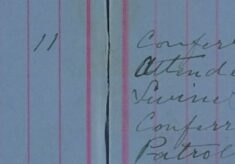 11
Confer
Attende
Swine
Conferr
Patrol